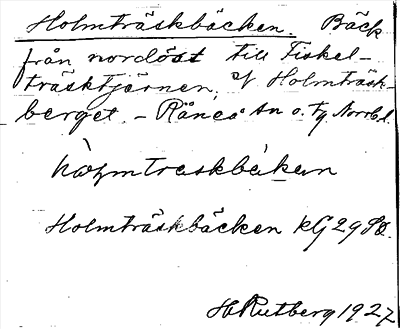 Holmträskbäcken. Bäck
från nordöst till Fiskel-
träsktjärnen, v Holmträsk-
berget. - Råneå sn o. tg Norrb.l.
hòlmtraskbäkan
Holmträskbäcken KG 29 SO.
H Rutberg 1927